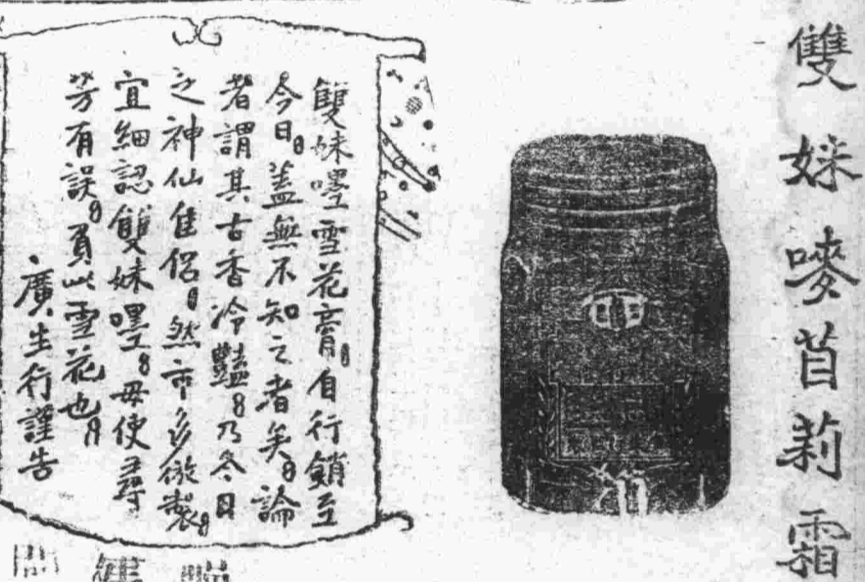 雙妹嘜苩莉霜
雙妹嚜雪花膏。自行銷至
今日。蓋無不知之者矣。論
者謂其古香冷豔。乃冬日
之神仙佳侶。然市多倣製。
宜細認雙妹嚜。毋使尋
芳有誤。負此雪花也。
廣生行謹告